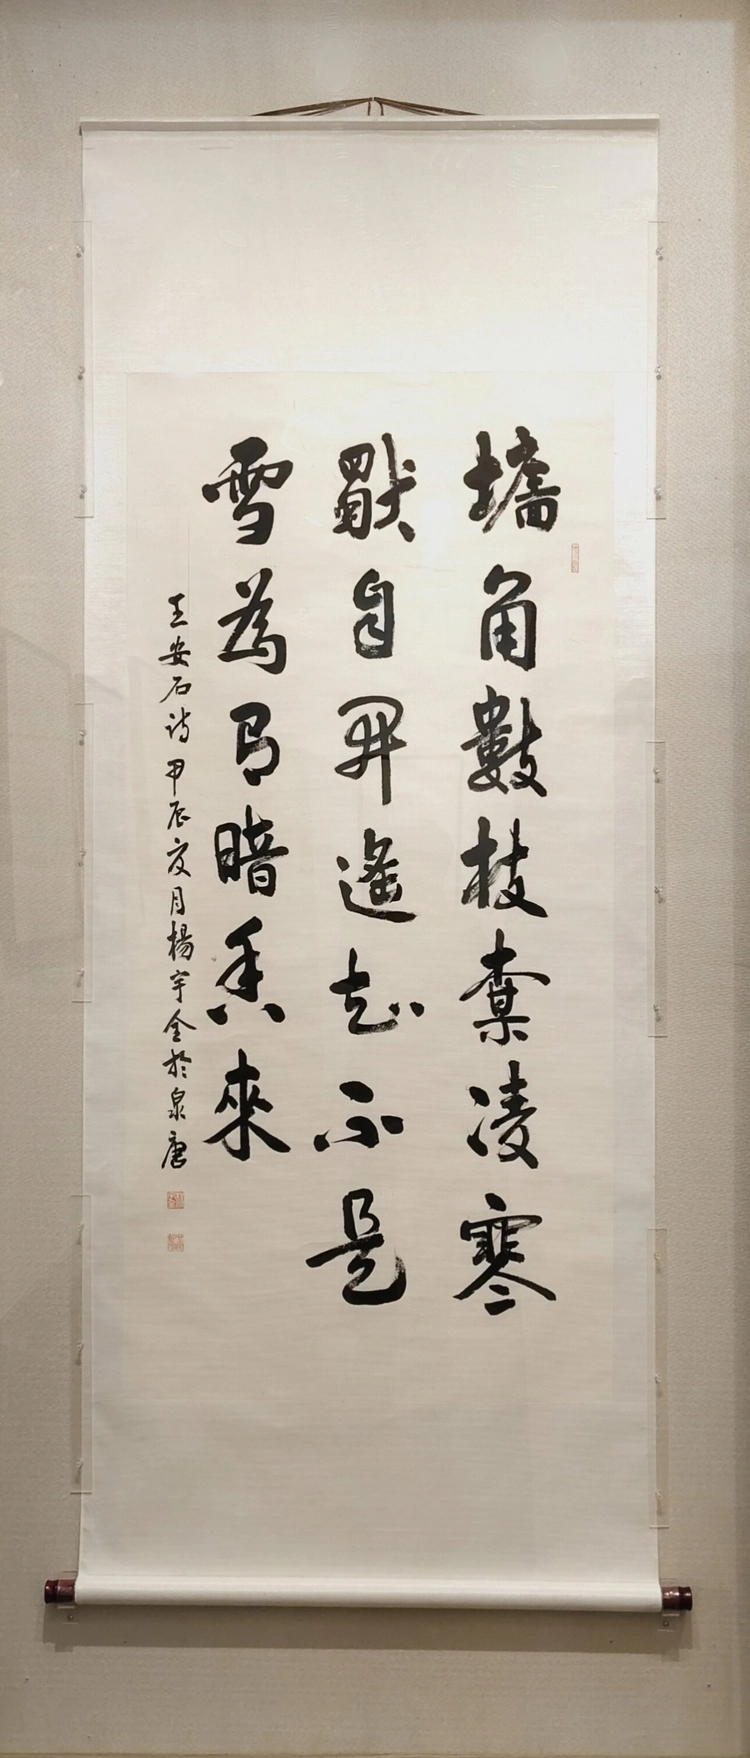 墻角數枝梅凌寒
獨自開遙知不是
雪為有暗香來
王安石詩甲辰夏月楊宇全於泉唐